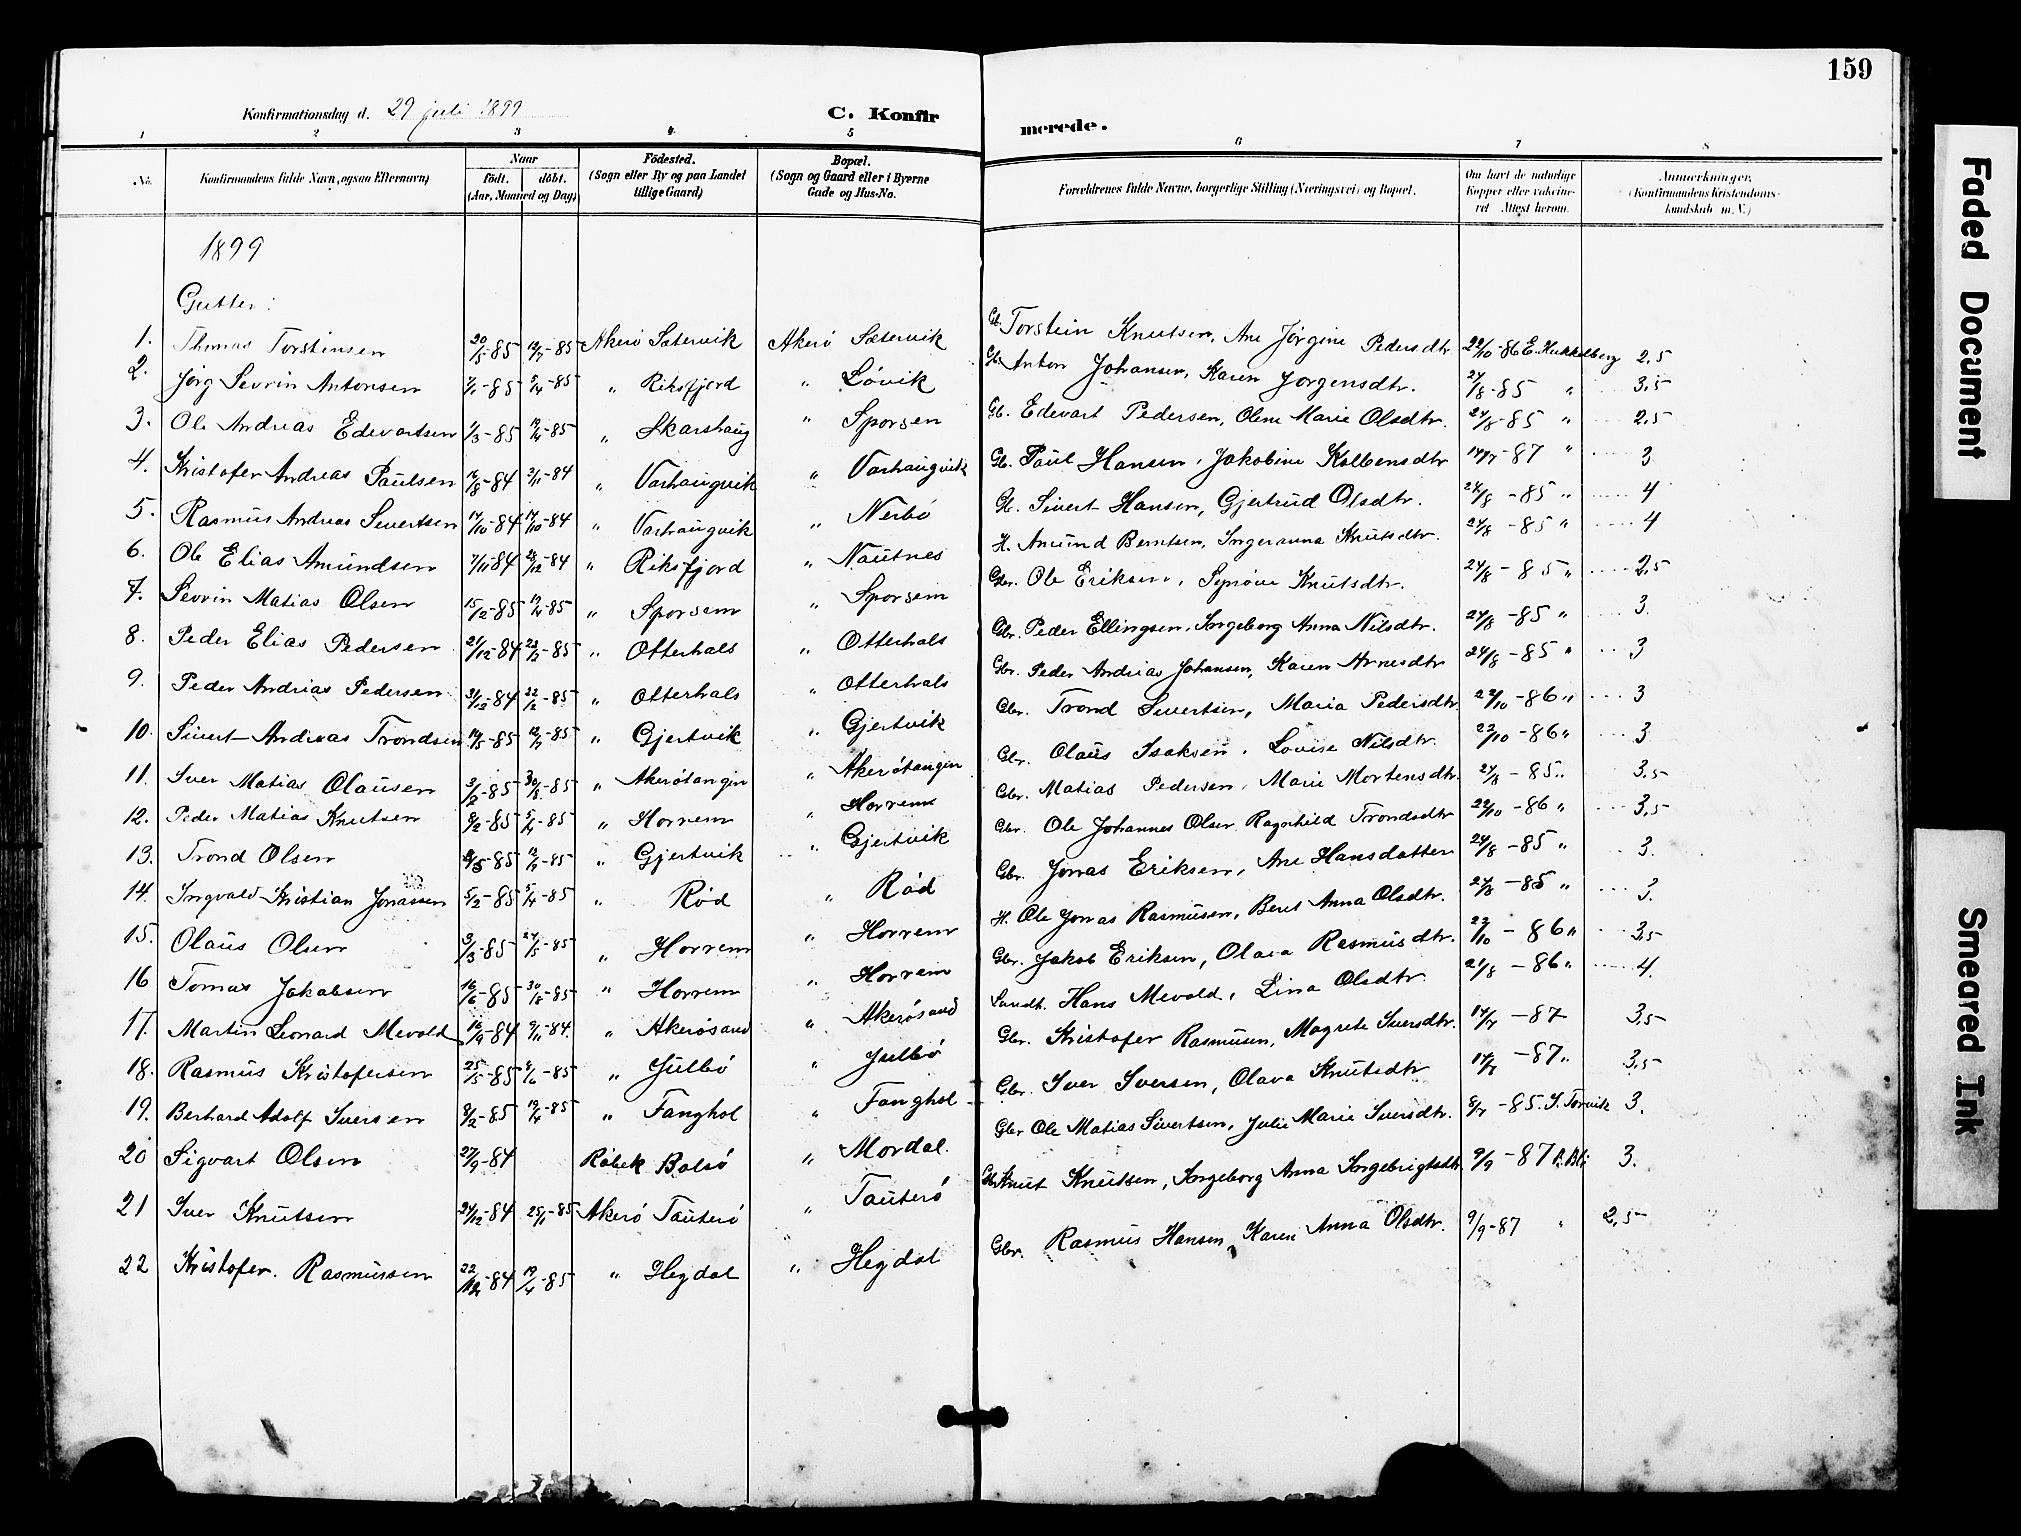 159
Konfirmationsdag d. 29 juli 1899
C. Konfirmerede.
1 2 3 4 5 6 7 8
No. Konfirmandens fulde Navn, ogsaa Efternavn) Naar födt. döbt. (Aar, Maaned og Dag) Födested. (Sogn eller By og paa Landet tillige Gaard) Bopæl. (Sogn og Gaard eller i Byerne Gade og Hus-No. Forældrenes fulde Navne, borgerlige Stilling (Næringsvei) og Bopæl. Om havt de naturlige Kopper eller vakcineret Attest herom. Anmerkninger. (Konfirmandens Kristendomskundskab m. V.)
1899
Gutter:
1. Thomas Torstinsen 20/5-85 12/7-85 Akerö Sætervik Akerö Sætervik Gb. Torstein Knutsen, Ane Jörgine Pedersdtr 22/10-86 E. Hukkelberg 2,5
2. Jörg Sevrin Antonsen 7/1-85 5/4-85 " Riksfjord " Lövik Gbr. Anton Johansen, Karen Jorgensdtr. 24/8-85 " 3,5
3. Ole Andreas Edevartsen 7/3-85 19/4-85 " Skarshaug " Sporsem Gb. Edevart Pedersen, Oline Marie Olsdtr. 24/8-85 " 2,5
4. Kristofer Andreas Paulsen 16/8-84 2/11-84 " Varhaugvik " Varhaugvik Gb. Paul Hansen, Jakobine Kolbensdtr 14/7-87 " 3
5. Rasmus Andreas Sivertsen 14/10-84 19/10-84 " Varhaugvik " Nerbö Gb. Sivert Hansen, Gjertrud Olsdtr. 24/8-85 " 4
6. Ole Elias Amundsen 7/11-84 28/12-84 " Riksfjord " Nautnes H. Amund Berntsen, Ingeranna Knutsdtr. 24/8-85 " 4
7. Sevrin Matias Olsen 15/12-85 19/4-85 " Sporsem " Sporsem Gbr. Ole Eriksen, Synöve Knutsdtr. 24/8-85 " 2,5
8. Peder Elias Pedersen 21/12-84 22/2-85 " Otterhals " Otterhals Gbr. Peder Ellingsen, Ingeborg Anna Nilsdtr. 24/8-85 " 3.
9. Peder Andrias Pedersen 31/12-84 22/2-85 " Otterhals " Otterhals Gbr. Peder Andrias Johansen, Karen Arnesdtr 24/8-85 " 3
10. Sivert Andreas Trondsen 14/5-85 12/7-85 " Gjertvik " Gjertvik Gbr. Trond Sivertsen, Maria Pedersdtr. 22/10-86 " 3
11. Iver Matias Olausen 3/2-85 30/8-85 " Akerötangen " Akerötangen Gbr. Olaus Isaksen, Lovise Nilsdtr. 22/10-86 " 3
12. Peder Matias Knutsen 8/2-85 5/4-85 " Horrem " Horrem Gbr. Matias Pedersen, Marie Mortensdtr. 24/8-85 " 3,5
13. Trond Olsen 8/5-85 12/7-85 " Gjertvik " Gjertvik Gbr. Ole Johannes Olsen Ragnhild Trondsdtr 22/10-86 " 3,5
14. Ingvald Kristian Jonassen 5/2-85 5/4-85 " Röd " Röd Gbr. Jonas Eriksen, Ane Hansdatter 24/8-85 " 3.
15. Olaus Olsen 3/3-85 24/5-85 " Horrem " Horrem H. Ole Jonas Rasmusen, Beret Anna Olsdtr. 24/8-85 " 3.
16 Tomas Jakobsen 16/6-85 30/8-85 " Horrem " Horrem Gbr. Jakob Eriksen, Olava Rasmusdtr. 22/10-86 " 3,5
17. Martin Leonard Mevold 19/9-84 9/11-84. " Akerösand " Akerösand Landh. Hans Mevold, Lina Olsdtr. 21/8-86 " 4.
18. Rasmus Kristofersen 25/5-85 4/6-85 " Julbö " Julbö Gbr. Kristofer Rasmusen, Magrete Iversdtr. 14/7-87 3,5
19. Berhard Adolf Iversen 8/2-85 19/4-85 " Fanghol " Fanghol Gbr. Iver Iversen, Olava Knutsdtr 14/7-87 " 3,5
20 Sigvart Olsen 27/9-84 Röbek Bolsö " Mordal. Gbr Ole Matias Sivertsen, Julie Marie Iversdtr. 8/7-85. S. Torvik 3.
21 Iver Knutsen 24/12-84 25/1-85 Akerö Tauterö " Tauterö Gbr Knut Knutsen, Ingeborg Anna Ingebrigtsdtr 9/9-87 3.
22 Kristofer. Rasmussen 22/12-84 19/4-85 " Hegdal " Hegdal Gbr. Rasmus Hansen, Karen Anna Olsdtr. 9/9-87 " 2,5
Faded Document
Smeared Ink